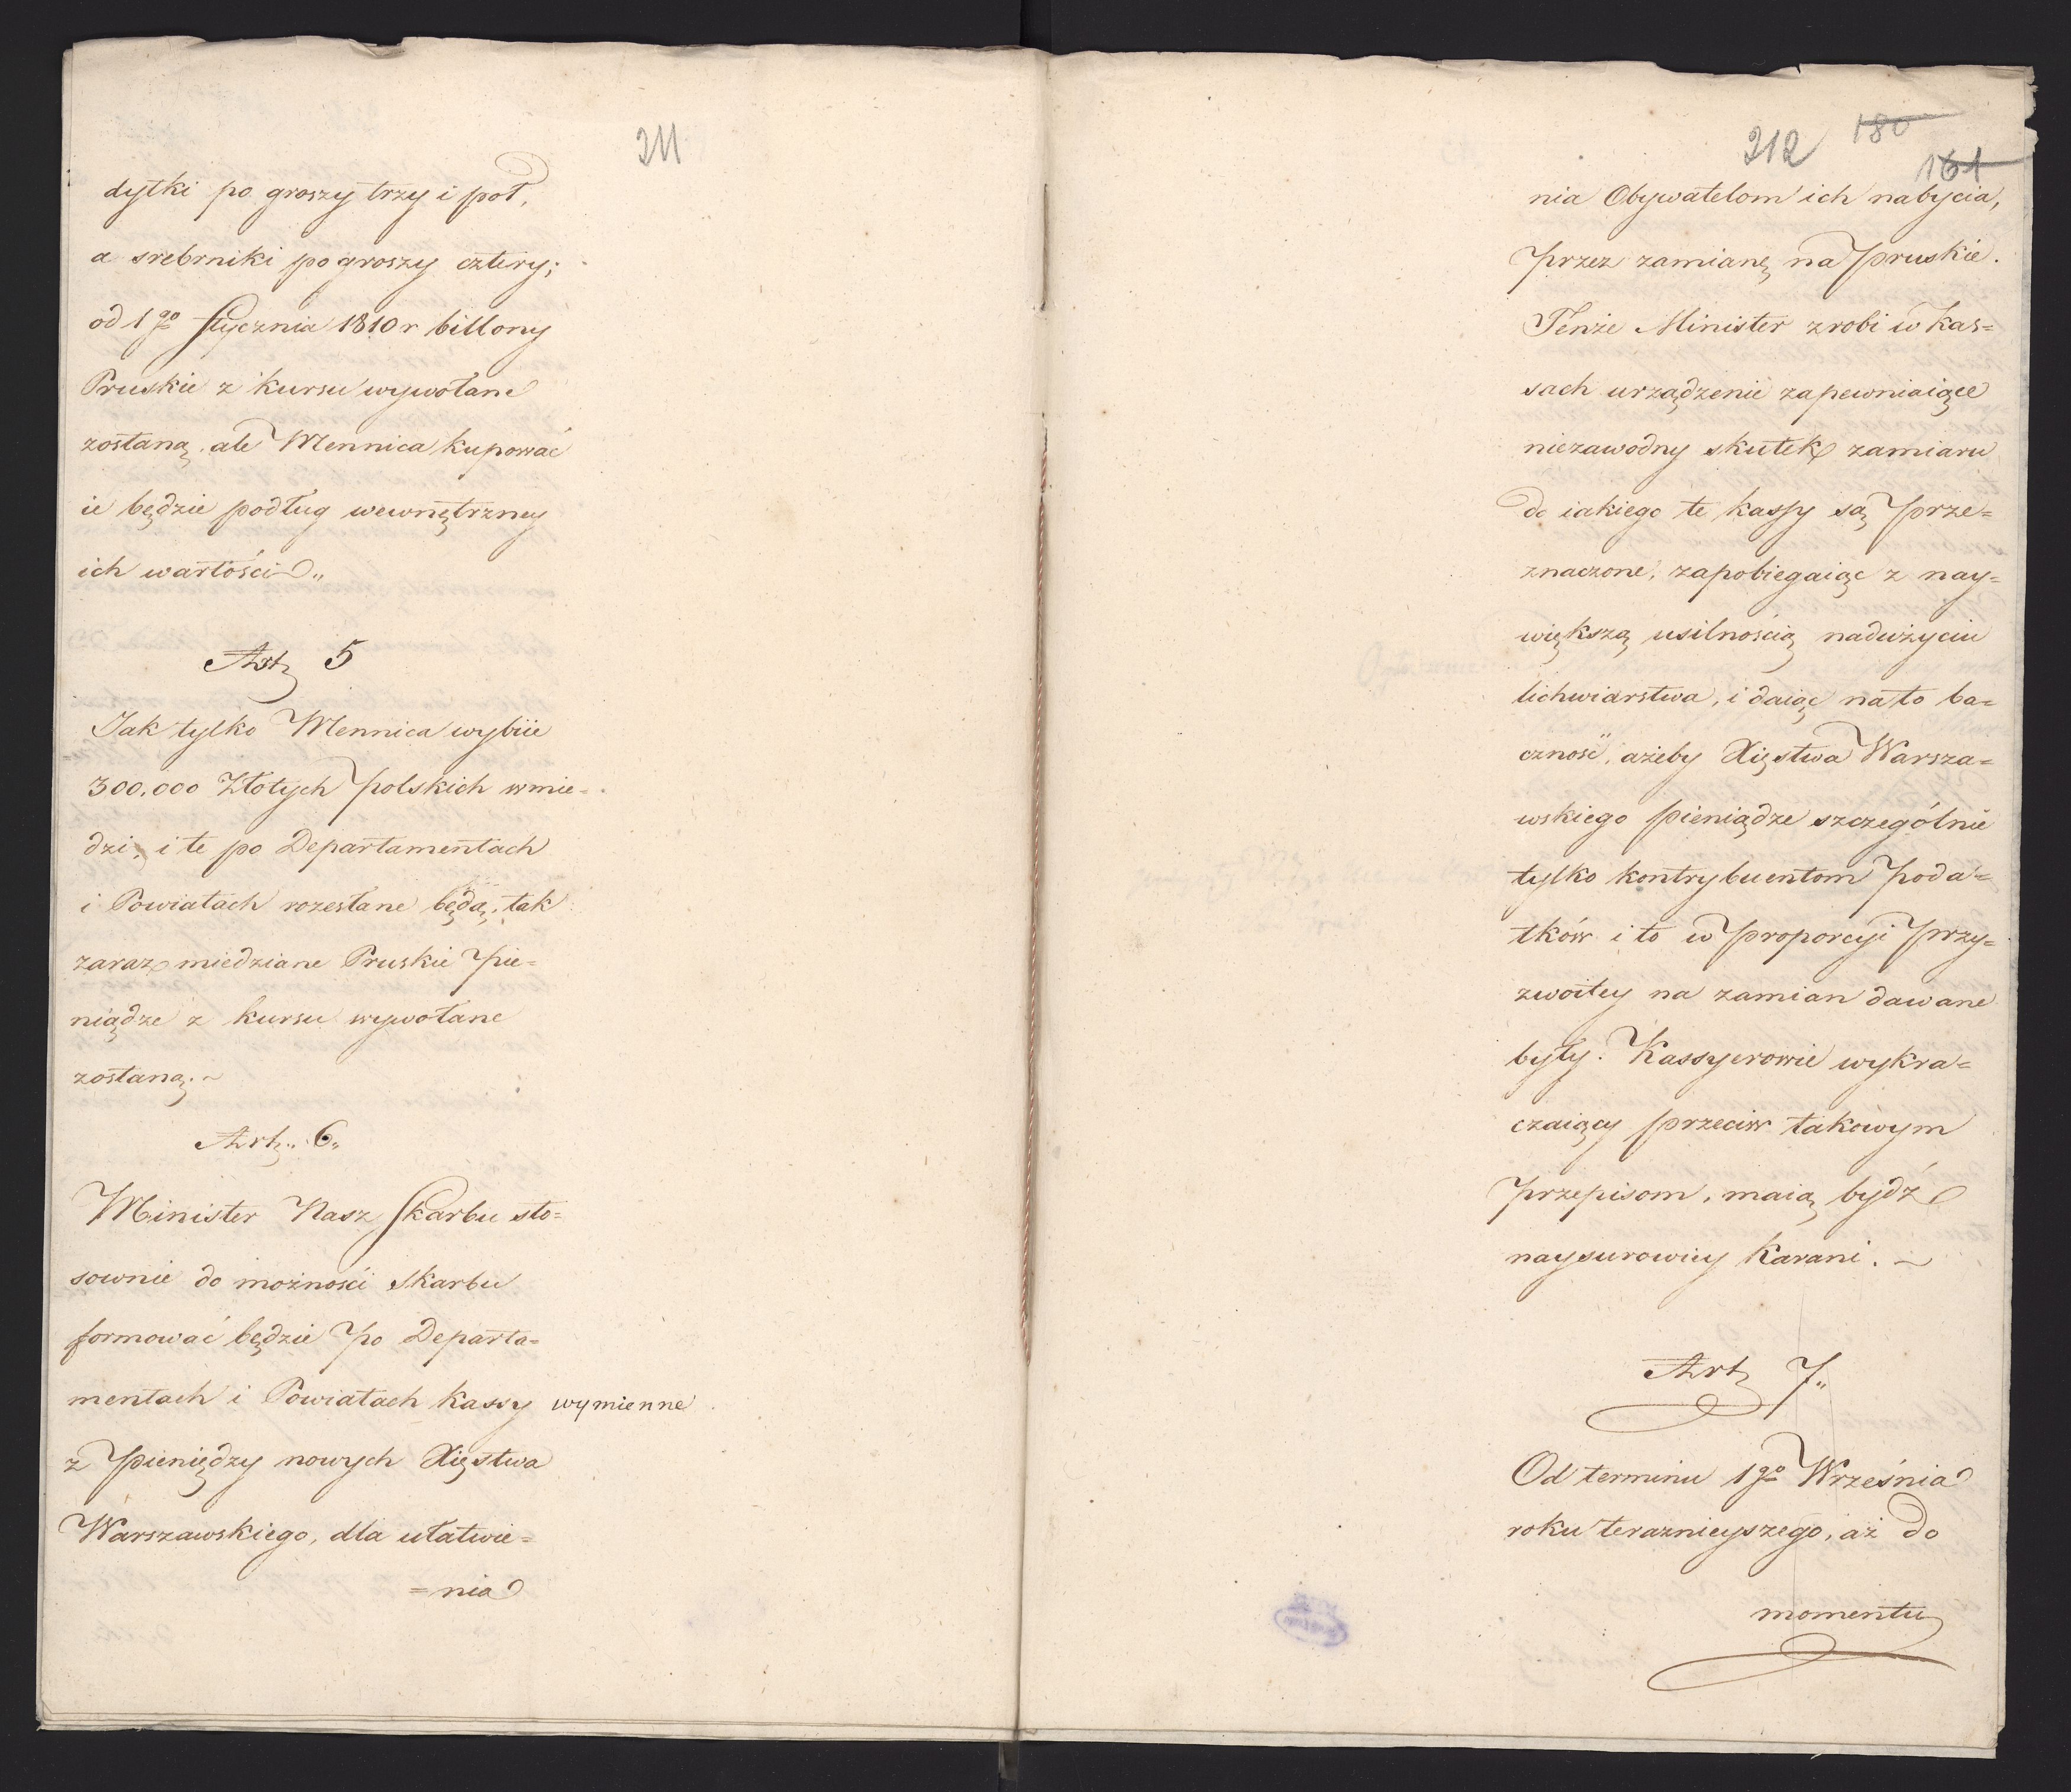 211
dytki po groszy trzy i poł,
a srebrniki po groszy cztery;
od 1go Stycznia 1810 r billony
Pruskie z kursu wywołane
zostaną, ale Mennica kupować
ie będzie podług wewnętrzney
ich wartości„
Art 5
Jak tylko Mennica wybiie
300,000 Złotych polskich w mie=
dzi, i te po Departamentach
i Powiatach rozesłane będą, tak
zaraz miedziane Pruskie pie=
niądze z kursu wywołane
zostaną.~
Art„ 6„
Minister Nasz Skarbu sto=
sownie do możności Skarbu
formować będzie po Departa=
mentach i Powiatach kassy wymienne
z pieniędzy nowych Xięstwa
Warszawskiego, dla ułatwie=
=nia
212 180
161
nia Obywatelom ich nabycia,
przez zamianę na pruskie.
Tenże Minister zrobi w kas=
sach urządzenie zapewniaiące
niezawodny skutek zamiaru
do iakiego te kassy są prze=
znaczone, zapobiegaiąc z nay=
większą usilnością nadużyciu
lichwiarstwa, i daiąc na to ba=
czność, ażeby Xięstwa Warsza=
wskiego pieniądze szczególnie
tylko kontrybuentom poda=
tków i to w proporcyi przy=
zwoitey na zamian dawane
były. Kassyerowie wykra=
czaiący przeciw takowym
przepisom, maią bydź
naysurowiey karani. ~
Art 7„
Od terminu 1go Września
roku teraznieyszego, aż do
momentu